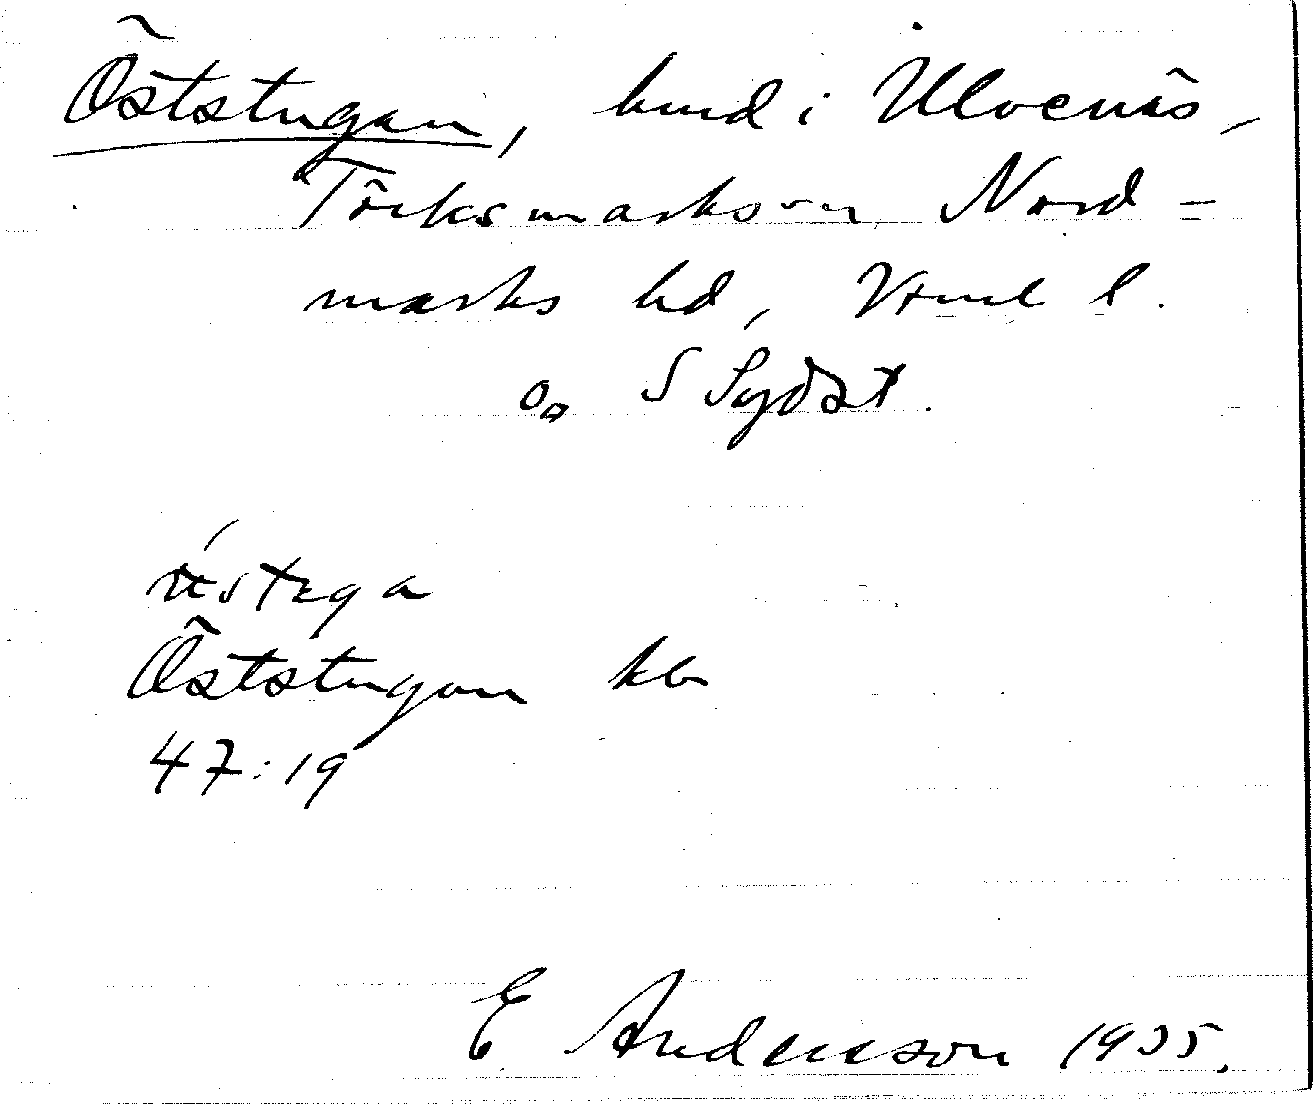 Öststugan, hmd i Ulvenäs,
Töcksmarks sn Nord-
marks hd, Vrml l.
S Sydöst.
Öststugan kbr
47:19
E Andersson 1935.